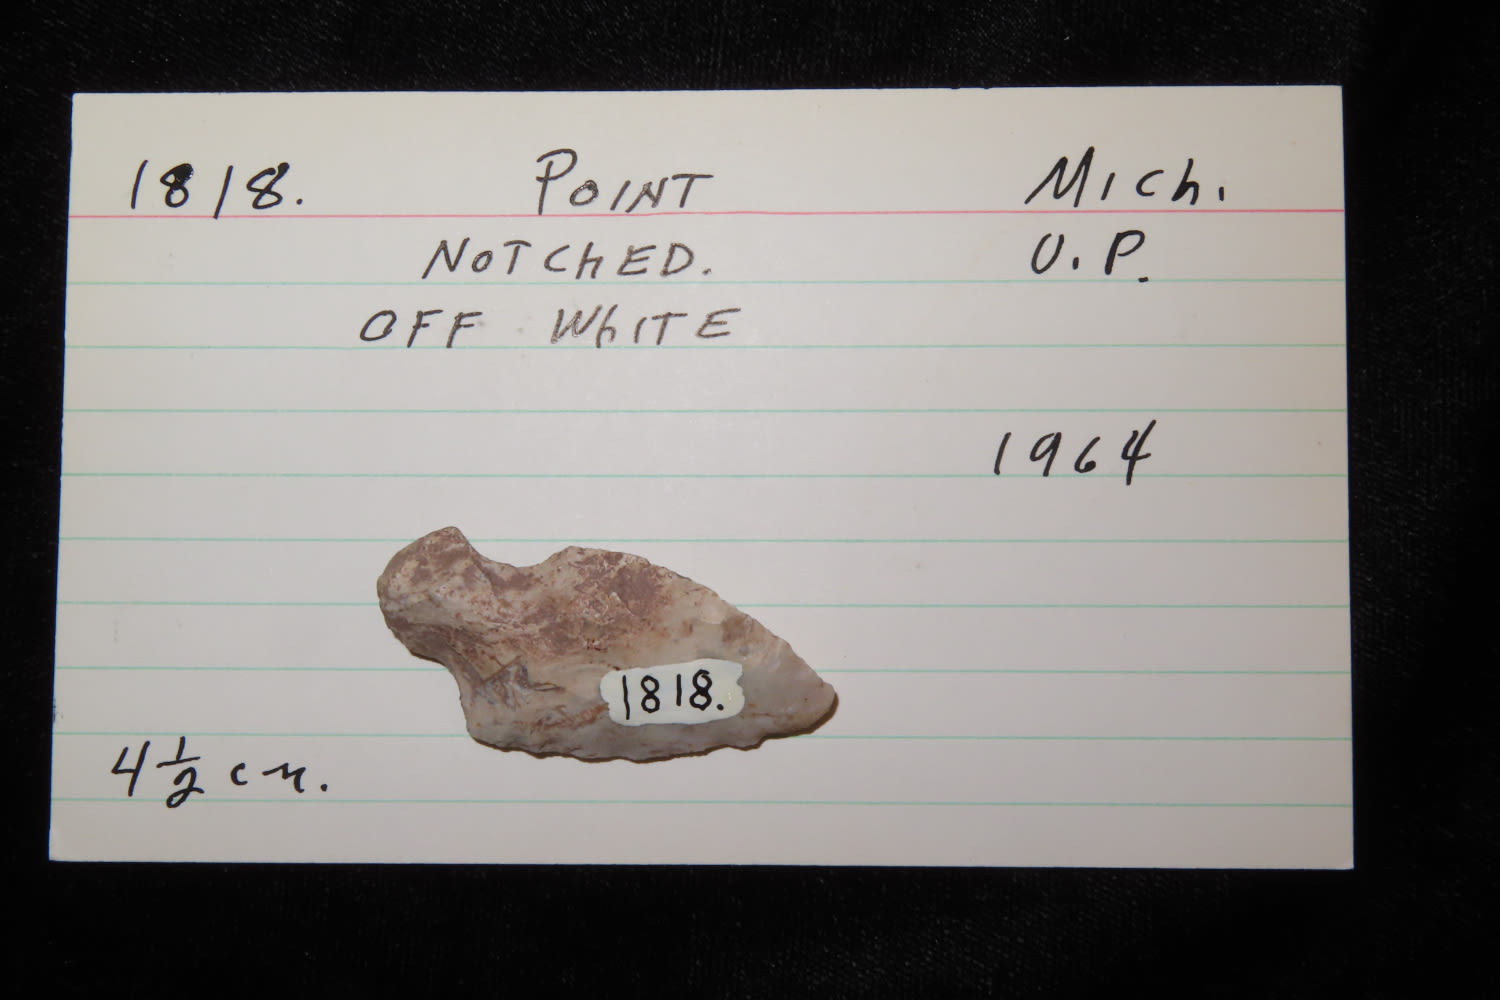 1818. POINT Mich.
NOTChED. U.P.
OFF WhITE
1964
1818.
4 1/2 cm.